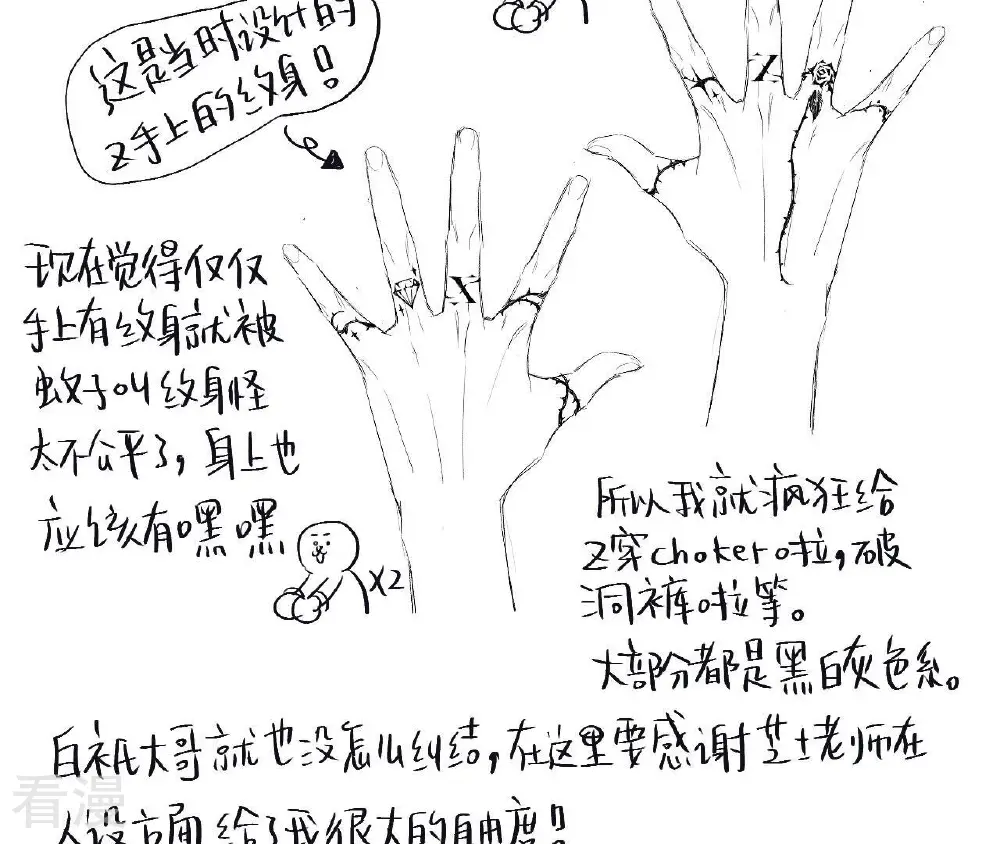 这是当时设计的
Z手上的纹身!!
现在觉得仅仅
手上有纹身就被
蚊子叫纹身怪
太不公平了，身上也
应该有嘿嘿
X2
X
Z
所以我就疯狂给
Z穿choker啦，破
洞裤啦等。
大部分都是黑白灰色系。
白祇大哥就也没怎么纠结，在这里要感谢芝士老师在
人设方面给了我很大的自由度!!
看漫